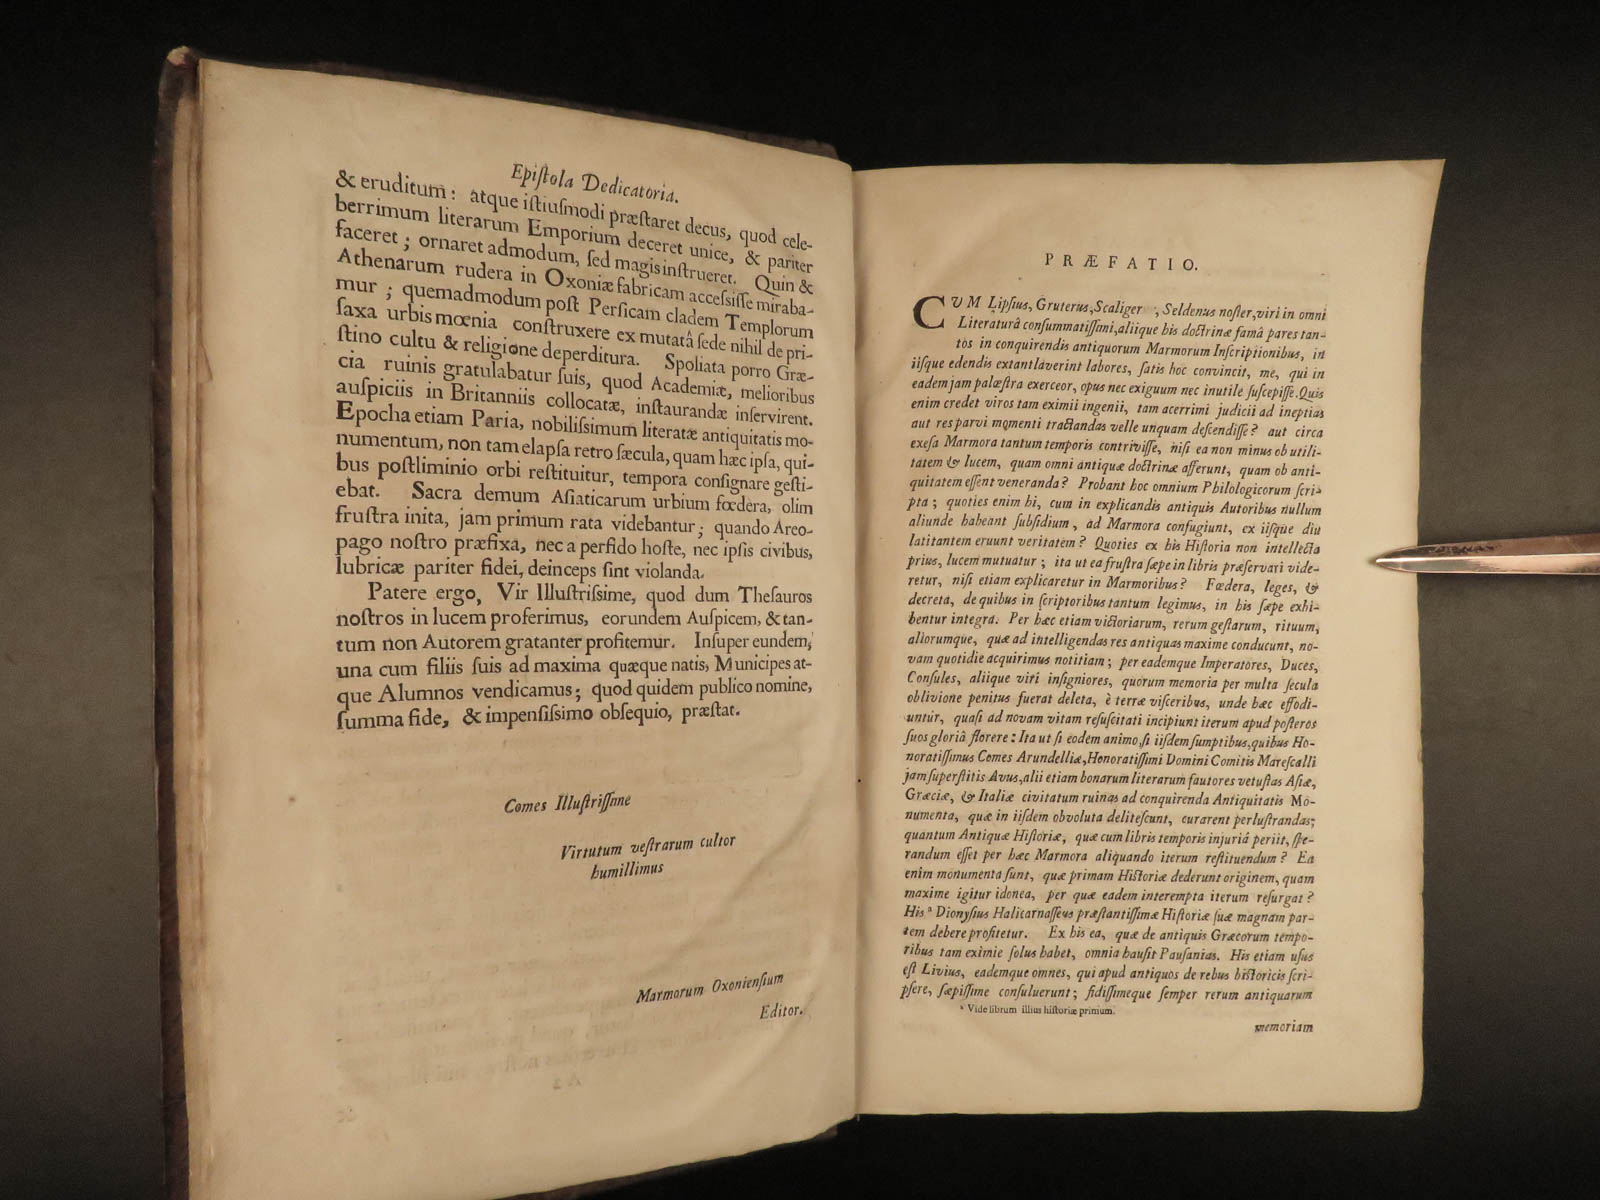 Epiſtola Dedicatoria.
& eruditum: atque iſtiuſmodi præſtaret decus, quod cele-
berrimum literarum Emporium deceret unice, & pariter
faceret; ornaret admodum, ſed magis inſtrueret. Quin &
Athenarum rudera in Oxoniæ fabricam acceſsiſſe miraba-
mur; quemadmodum poſt Perſicam cladem Templorum
ſaxa urbis mœnia conſtruxere ex mutatâ ſede nihil de pri-
ſtino cultu & religione deperditura. Spoliata porro Græ-
cia ruinis gratulabatur ſuis, quod Academiæ, melioribus
auſpiciis in Britanniis collocatæ, inſtaurandæ inſervirent.
Epocha etiam Paria, nobiliſsimum literatæ antiquitatis mo-
numentum, non tam elapſa retro ſæcula, quam hæc ipſa, qui-
bus poſtliminio orbi reſtituitur, tempora conſignare geſti-
ebat. Sacra demum Aſiaticarum urbium fœdera, olim
fruſtra inita, jam primum rata videbantur; quando Areo-
pago noſtro præfixa, nec a perfido hoſte, nec ipſis civibus,
lubricæ pariter fidei, deinceps ſint violanda.
Patere ergo, Vir Illuſtriſsime, quod dum Theſauros
noſtros in lucem proferimus, eorundem Auſpicem, & tan-
tum non Autorem gratanter profitemur. Inſuper eundem,
una cum filiis ſuis ad maxima quæque natis, Municipes at-
que Alumnos vendicamus; quod quidem publico nomine,
ſumma fide, & impenſiſsimo obſequio, præſtat.
Comes Illuſtriſſime
Virtutum veſtrarum cultor
humillimus
Marmorum Oxonienſium
Editor.
PRÆFATIO.
CUM Lipſius, Gruterus, Scaliger, Seldenus noſter, viri in omni
Literaturâ conſummatiſſimi, aliique his doctrinæ famâ pares tan-
tos in conquirendis antiquorum Marmorum Inſcriptionibus, in
iiſque edendis extantlaverint labores, ſatis hoc convincit, me, qui in
eadem jam palæſtra exerceor, opus nec exiguum nec inutile ſuſcepiſſe. Quis
enim credet viros tam eximii ingenii, tam acerrimi judicii ad ineptias
aut res parvi momenti tractandas velle unquam deſcendiſſe? aut circa
exeſa Marmora tantum temporis contriviſſe, niſi ea non minus ob utili-
tatem & lucem, quam omni antiquæ doctrinæ afferunt, quam ob anti-
quitatem eſſent veneranda? Probant hoc omnium Philologicorum ſcri-
pta; quoties enim hi, cum in explicandis antiquis Autoribus nullum
aliunde habeant ſubſidium, ad Marmora confugiunt, ex iiſque diu
latitantem eruunt veritatem? Quoties ex his Hiſtoria non intellecta
prius, lucem mutuatur; ita ut ea fruſtra ſæpe in libris præſervari vide-
retur, niſi etiam explicaretur in Marmoribus? Fœdera, leges, &
decreta, de quibus in ſcriptoribus tantum legimus, in his ſæpe exhi-
bentur integra. Per hæc etiam victoriarum, rerum geſtarum, rituum,
aliorumque, quæ ad intelligendas res antiquas maxime conducunt, no-
vam quotidie acquirimus notitiam; per eademque Imperatores, Duces,
Conſules, aliique viri inſigniores, quorum memoria per multa ſecula
oblivione penitus fuerat deleta, è terræ viſceribus, unde hæc effodi-
untur, quaſi ad novam vitam reſuſcitati incipiunt iterum apud poſteros
ſuos gloriâ florere: Ita ut ſi eodem animo, ſi iiſdem ſumptibus, quibus Ho-
noratiſſimus Comes Arundelliæ, Honoratiſſimi Domini Comitis Mareſcalli
jam ſuperſtitis Avus, alii etiam bonarum literarum fautores vetuſtas Aſiæ,
Græciæ, & Italiæ civitatum ruinas ad conquirenda Antiquitatis Mo-
numenta, quæ in iiſdem obvoluta deliteſcunt, curarent perluſtrandas;
quantum Antiquæ Hiſtoriæ, quæ cum libris temporis injuriâ periit, ſpe-
randum eſſet per hæc Marmora aliquando iterum reſtituendum? Ea
enim monumenta ſunt, quæ primam Hiſtoriæ dederunt originem, quam
maxime igitur idonea, per quæ eadem interempta iterum reſurgat?
His ª Dionyſius Halicarnaſſeus præſtantiſſimæ Hiſtoriæ ſuæ magnam par-
tem debere profitetur. Ex his ea, quæ de antiquis Græcorum tempo-
ribus tam eximie ſolus habet, omnia hauſit Pauſanias. His etiam uſus
eſt Livius, eademque omnes, qui apud antiquos de rebus hiſtoricis ſcri-
pſere, ſæpiſſime conſuluerunt; fidiſſimeque ſemper rerum antiquarum
ª Vide librum illius hiſtoriæ primum.
memoriam